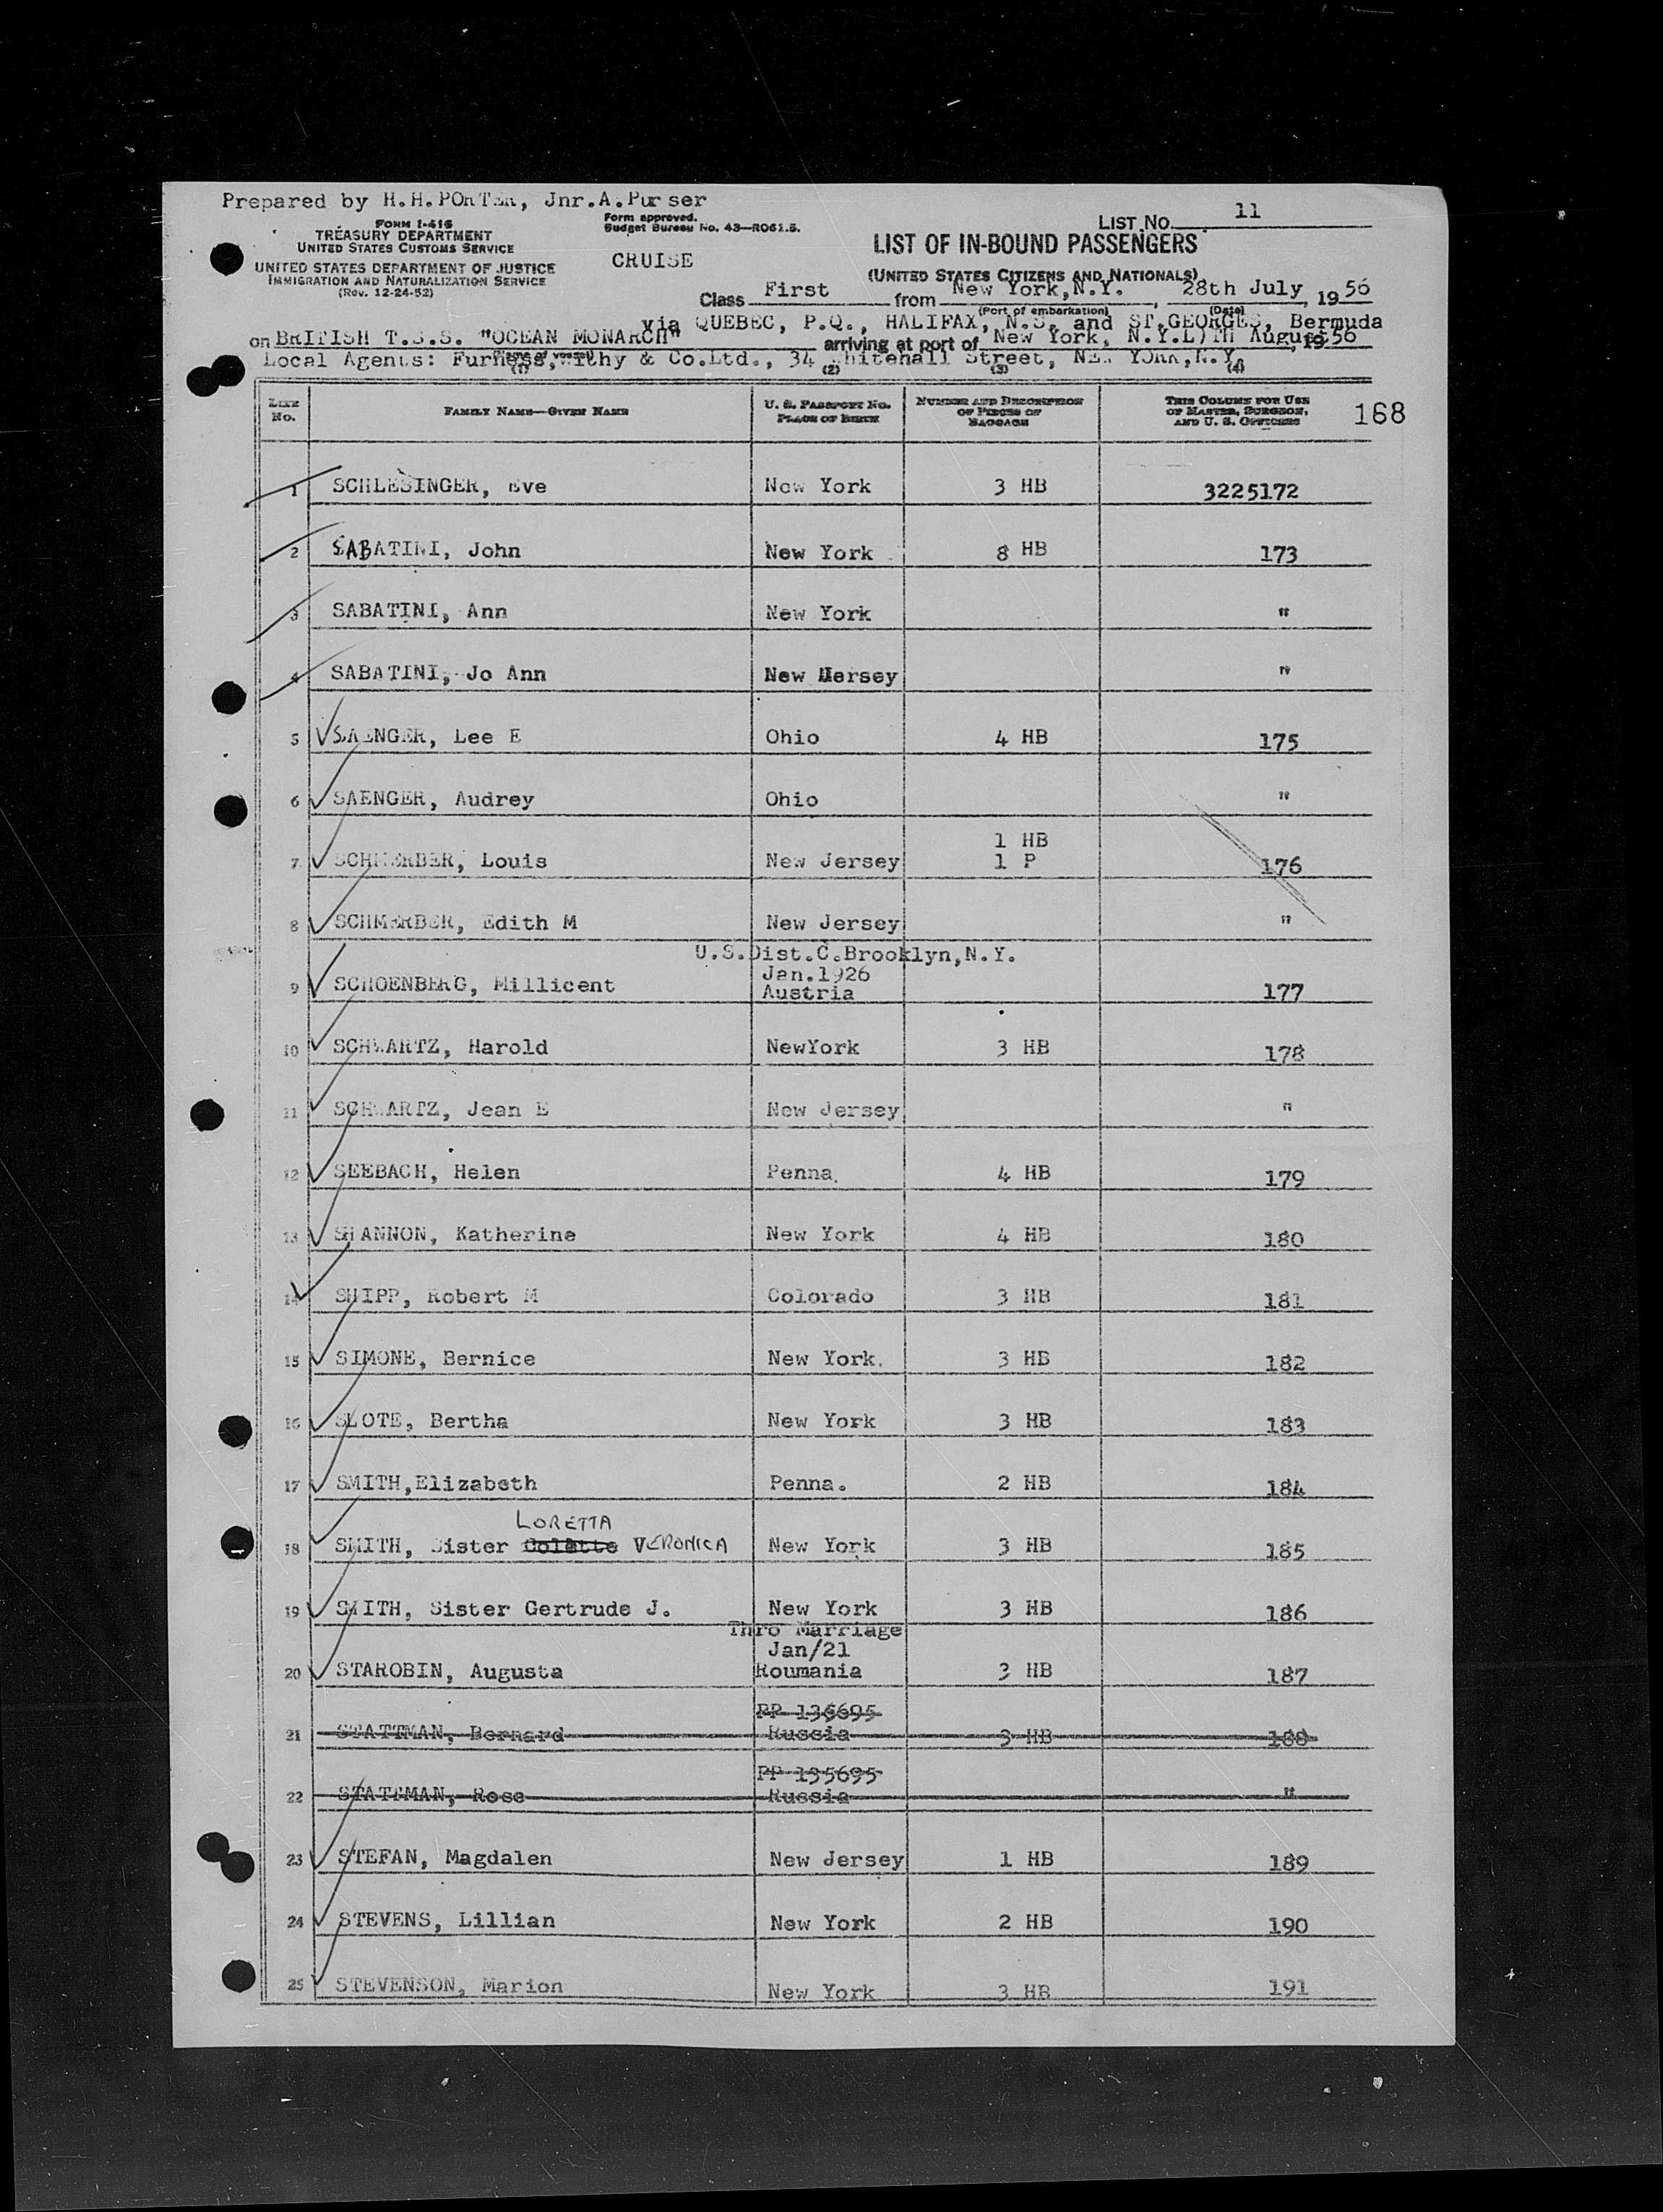 Prepared by H.H.PORTER, Jnr.A.Purser
FORM I-416
TREASURY DEPARTMENT
UNITED STATES CUSTOMS SERVICE
UNITED STATES DEPARTMENT OF JUSTICE
IMMIGRATION AND NATURALIZATION SERVICE
(Rev. 12-24-52)
Form approved.
Budget Bureau No. 43—R061.5.
CRUISE
LIST No. 11
LIST OF IN-BOUND PASSENGERS
(UNITED STATES CITIZENS AND NATIONALS)
Class First from New York, N.Y. , 28th July , 1956
(Port of embarkation) (Date)
via QUEBEC, P.Q., HALIFAX, N.S. and ST.GEORGES, Bermuda
on BRITISH T.S.S. "OCEAN MONARCH" arriving at port of New York, N.Y. August 1956
(Name of vessel)
Local Agents: Furness, Withy & Co.Ltd., 34 Whitehall Street, NEW YORK, N.Y.
(1) (2) (3) (4)
LINE No. FAMILY NAME—GIVEN NAME U. S. PASSPORT NO. PLACE OF BIRTH NUMBER AND DESCRIPTION OF PIECES OF BAGGAGE THIS COLUMN FOR USE OF MASTER, SURGEON, AND U. S. OFFICERS 168
1 SCHLESINGER, Eve New York 3 HB 3225172
2 SABATINI, John New York 8 HB 173
3 SABATINI, Ann New York "
4 SABATINI, Jo Ann New Jersey "
5 SAENGER, Lee E Ohio 4 HB 175
6 SAENGER, Audrey Ohio "
1 HB
7 SCHMERBER, Louis New Jersey 1 P 176
8 SCHMERBER, Edith M New Jersey "
U.S.Dist.C.Brooklyn,N.Y.
Jan.1926
9 SCHOENBERG, Millicent Austria 177
10 SCHWARTZ, Harold NewYork 3 HB 178
11 SCHWARTZ, Jean E New Jersey "
12 SEEBACH, Helen Penna. 4 HB 179
13 SHANNON, Katherine New York 4 HB 180
14 SHIPP, Robert M Colorado 3 HB 181
15 SIMONE, Bernice New York. 3 HB 182
16 SLOTE, Bertha New York 3 HB 183
17 SMITH,Elizabeth Penna. 2 HB 184
LORETTA
18 SMITH, Sister Colette VERONICA New York 3 HB 185
19 SMITH, Sister Gertrude J. New York 3 HB 186
Thro Marriage
Jan/21
20 STAROBIN, Augusta Roumania 3 HB 187
PP 135695
21 STATTMAN, Bernard Russia 3 HB 188
PP 135695
22 STATTMAN, Rose Russia "
23 STEFAN, Magdalen New Jersey 1 HB 189
24 STEVENS, Lillian New York 2 HB 190
25 STEVENSON, Marion New York 3 HB 191